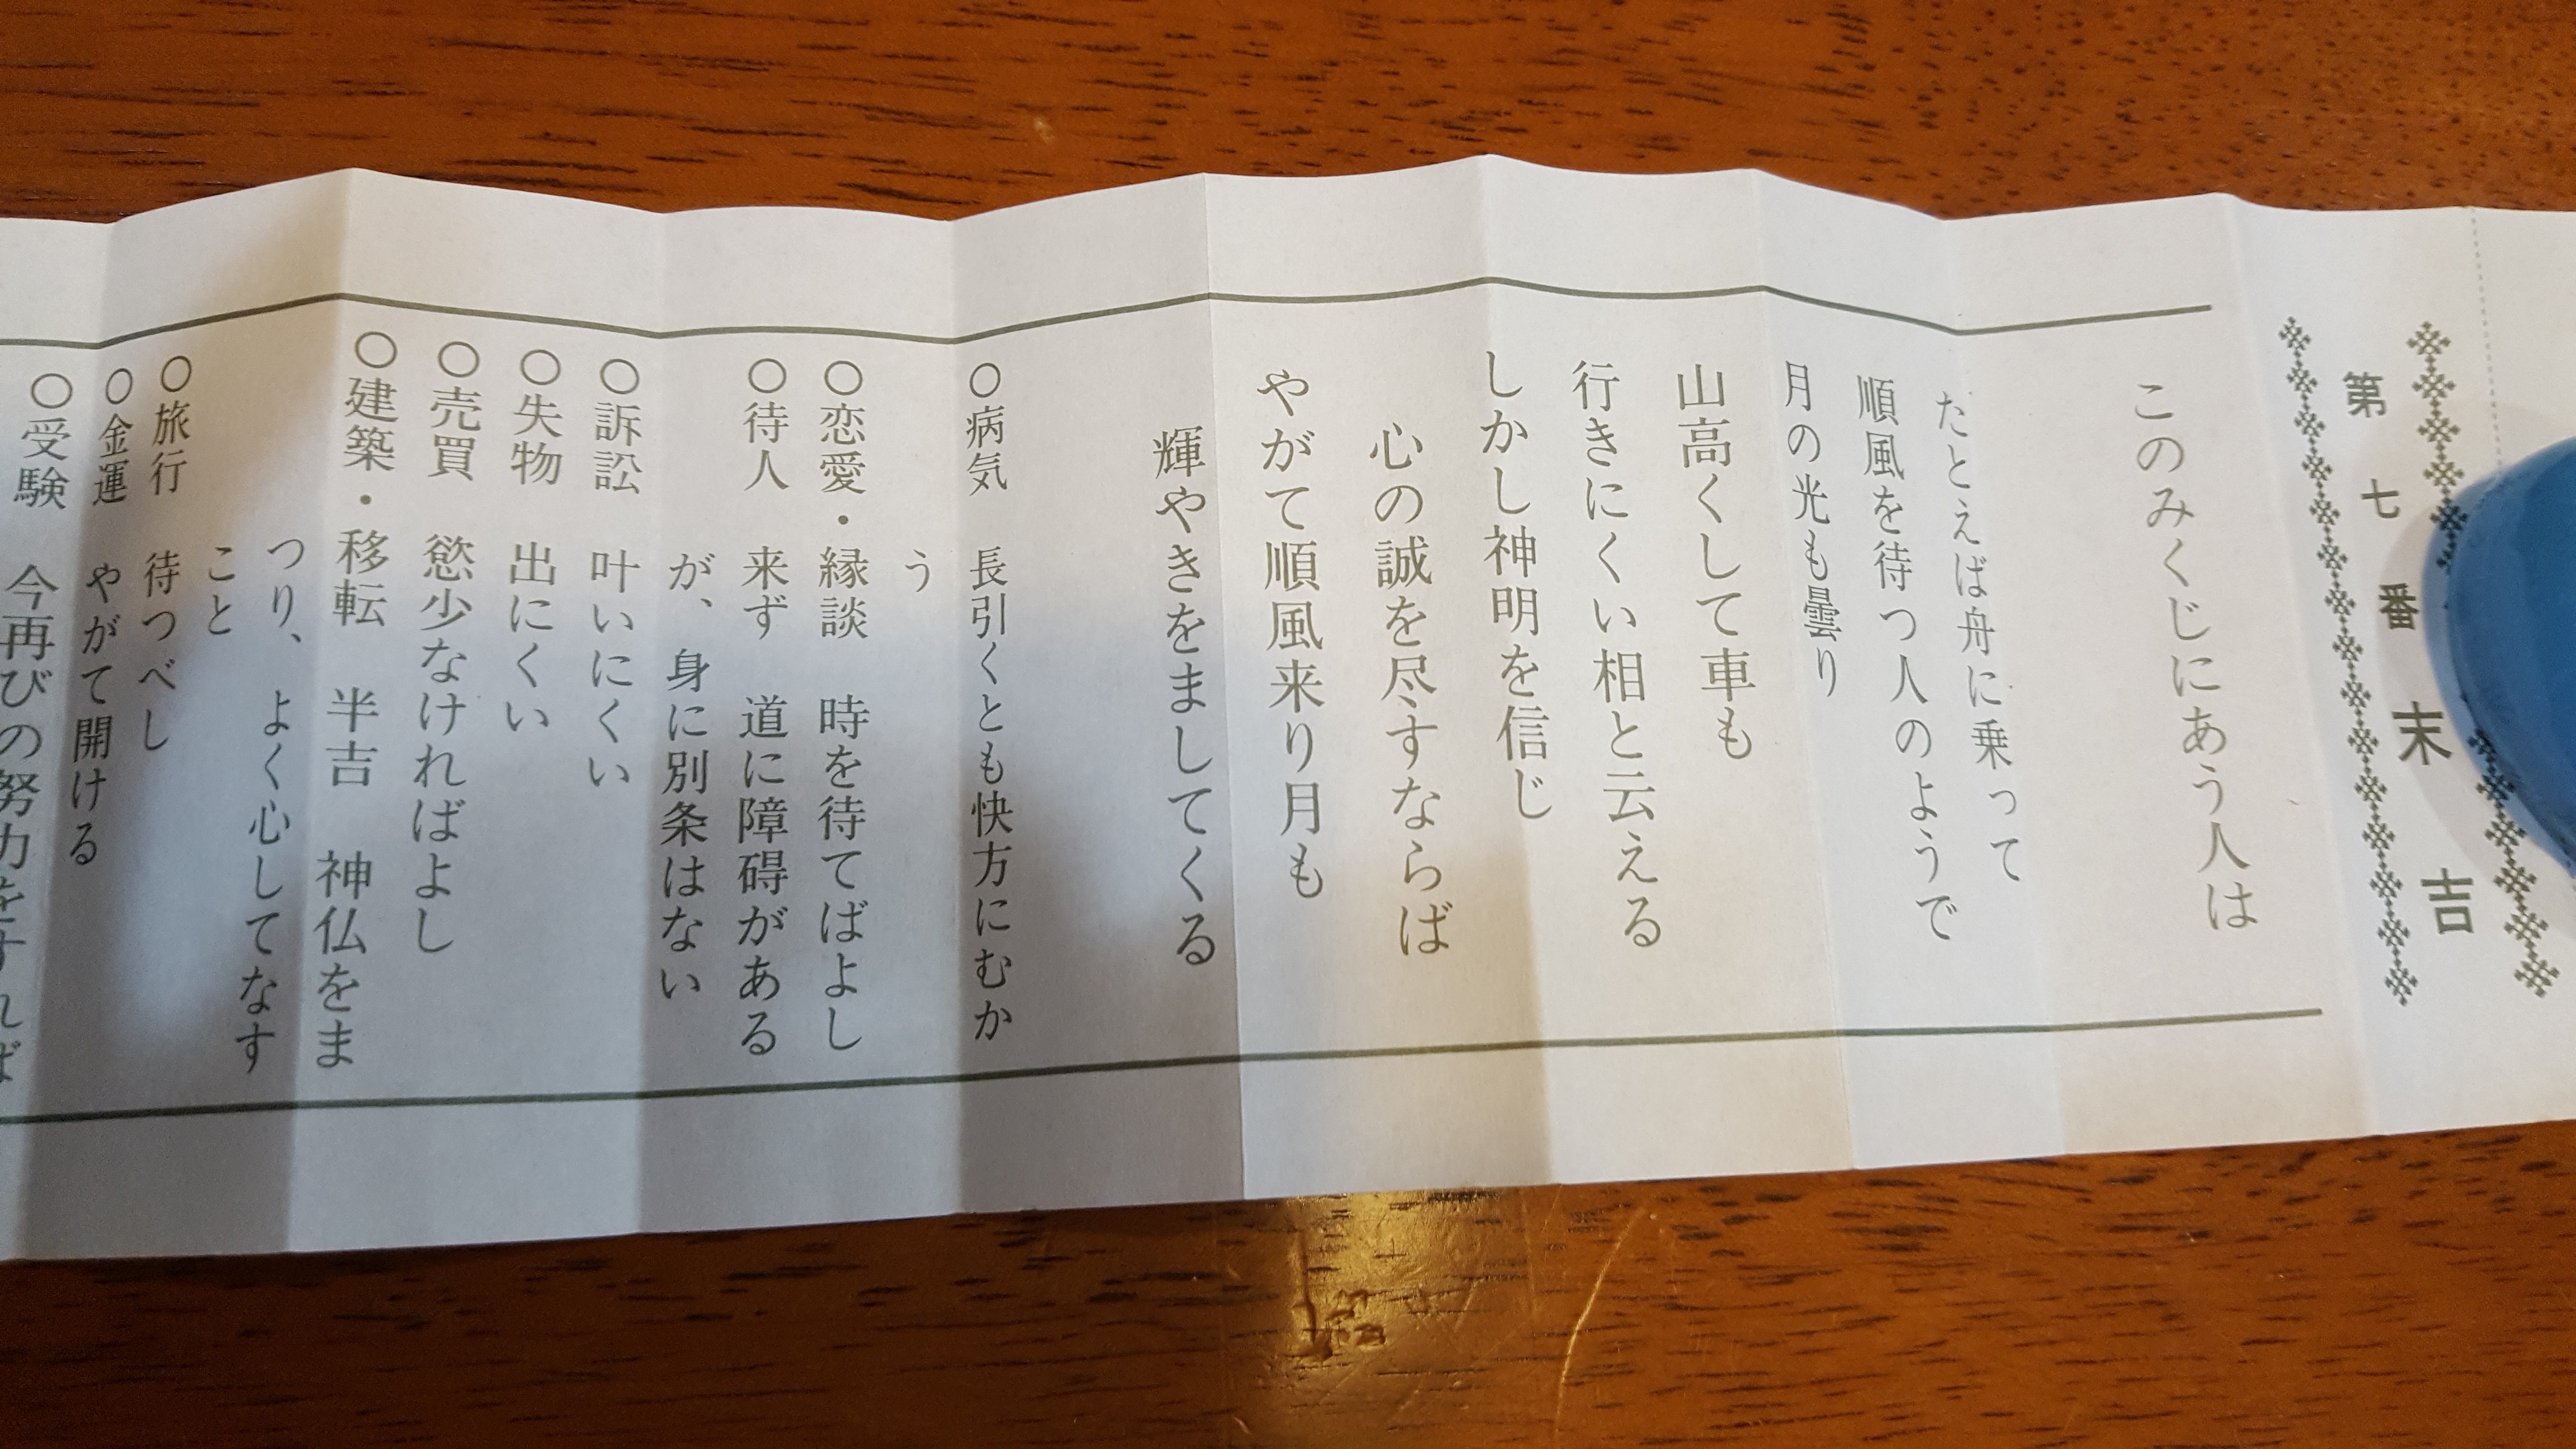 第七番 末吉
このみくじにあう人は
たとえば舟に乗って
順風を待つ人のようで
月の光も曇り
山高くして車も
行きにくい相と云える
しかし神明を信じ
心の誠を尽すならば
やがて順風来り月も
輝やきをましてくる
○病気 長引くとも快方にむか
う
○恋愛・縁談 時を待てばよし
○待人 来ず 道に障碍がある
が、身に別条はない
○訴訟 叶いにくい
○失物 出にくい
○売買 慾少なければよし
○建築・移転 半吉 神仏をま
つり、よく心してなす
こと
○旅行 待つべし
○金運 やがて開ける
○受験 今再びの努力をすれば